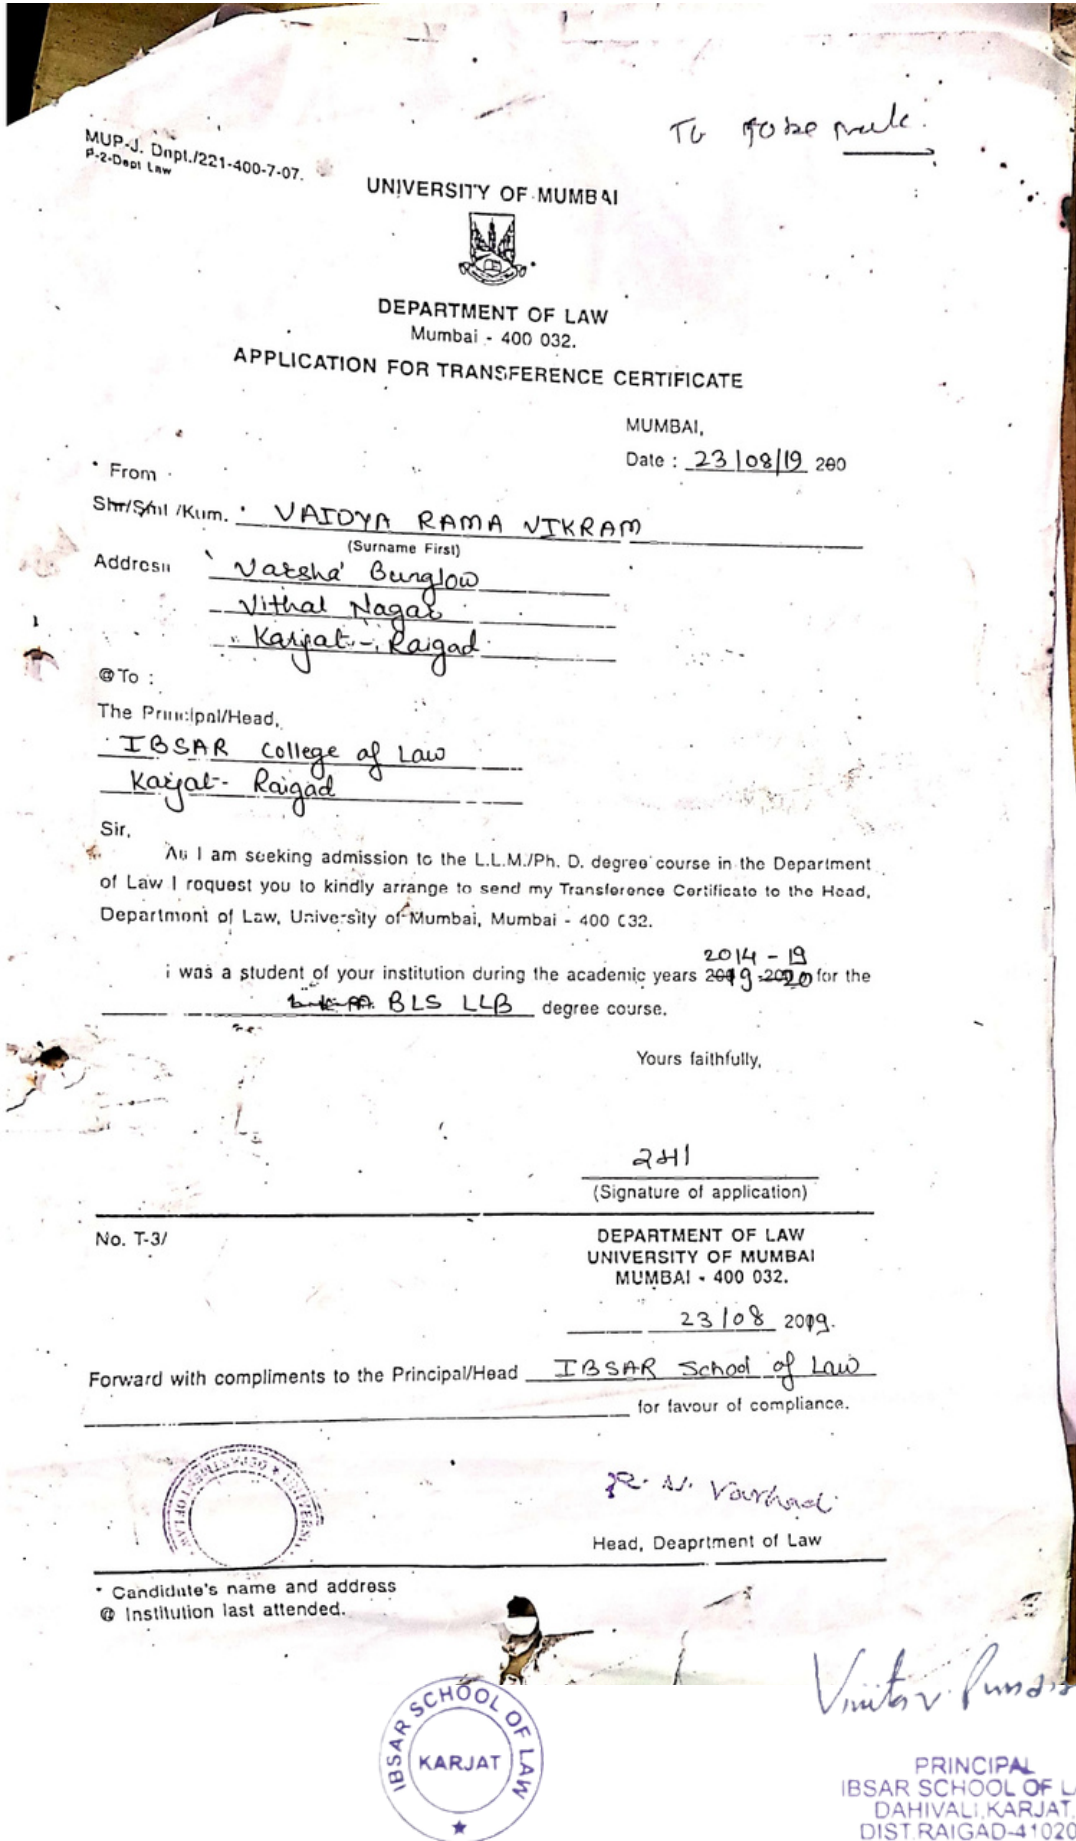 To
MUP-J. Dnpt./221-400-7-07.
P-2-Dept Law
UNIVERSITY OF MUMBAI
DEPARTMENT OF LAW
Mumbai - 400 032.
APPLICATION FOR TRANSFERENCE CERTIFICATE
MUMBAI,
Date : 23/08/19 200
* From
Shr/Smt /Kum. VAIDYA RAMA VIKRAM
(Surname First)
Address 'Varsha' Bunglow
Vithal Nagar
Karjat - Raigad
@ To :
The Principal/Head,
IBSAR College of Law
Karjat - Raigad
Sir,
As I am seeking admission to the L.L.M./Ph. D. degree course in the Department
of Law I request you to kindly arrange to send my Transference Certificate to the Head,
Department of Law, University of Mumbai, Mumbai - 400 032.
2014 - 19
i was a student of your institution during the academic years 2019-2020 for the
BLS LLB degree course.
Yours faithfully,
रमा
(Signature of application)
No. T-3/
DEPARTMENT OF LAW
UNIVERSITY OF MUMBAI
MUMBAI - 400 032.
23/08 2019.
Forward with compliments to the Principal/Head IBSAR School of Law
for favour of compliance.
R. N. Varhadi
Head, Deaprtment of Law
* Candidate's name and address
@ Institution last attended.
IBSAR SCHOOL OF LAW
KARJAT
PRINCIPAL
IBSAR SCHOOL OF LA
DAHIVALI,KARJAT,
DIST.RAIGAD-41020